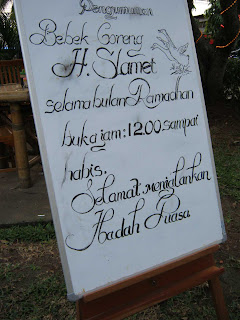 Pengumuman
Bebek Goreng
H. Slamet
selama bulan Ramadhan
buka jam: 12.00 sampai
habis.
Selamat menjalankan
Ibadah Puasa